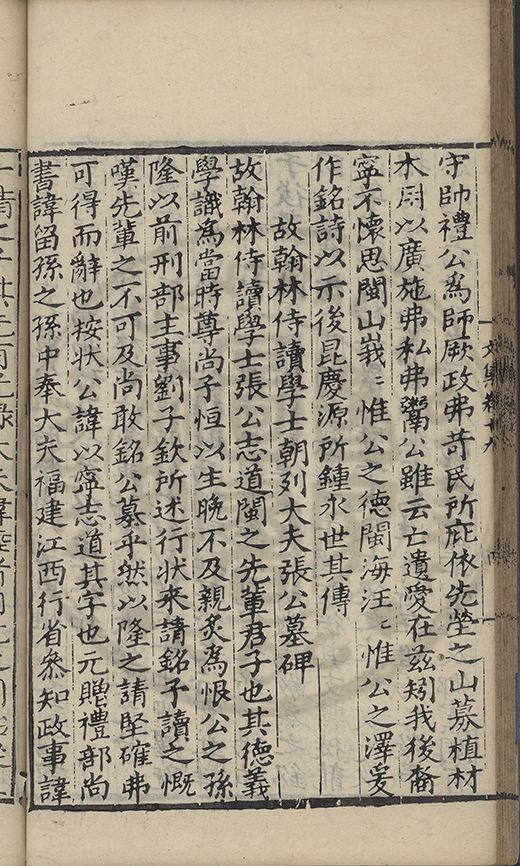 守帥禮公爲師厥政弗苛民所庇依先塋之山蓊植材
木用以廣施弗私弗鬻公雖云亡遺愛在兹矧我後裔
寧不懷思閩山峩〻惟公之德閩海汪〻惟公之澤爰
作銘詩以示後昆慶源所鍾永世其傳
故翰林侍讀學士朝列大夫張公墓碑
故翰林侍讀學士張公志道閩之先輩君子也其德義
學識爲當時尊尚予恒以生晚不及親炙爲恨公之孫
隆以前刑部主事劉子欽所述行状来請銘予讀之慨
嘆先輩之不可及尚敢銘公墓乎然以隆之請堅確弗
可得而辭也按状公諱以寧志道其字也元贈禮部尚
書諱留孫之孫中奉大夫福建江西行省參知政事諱
文集卷十八